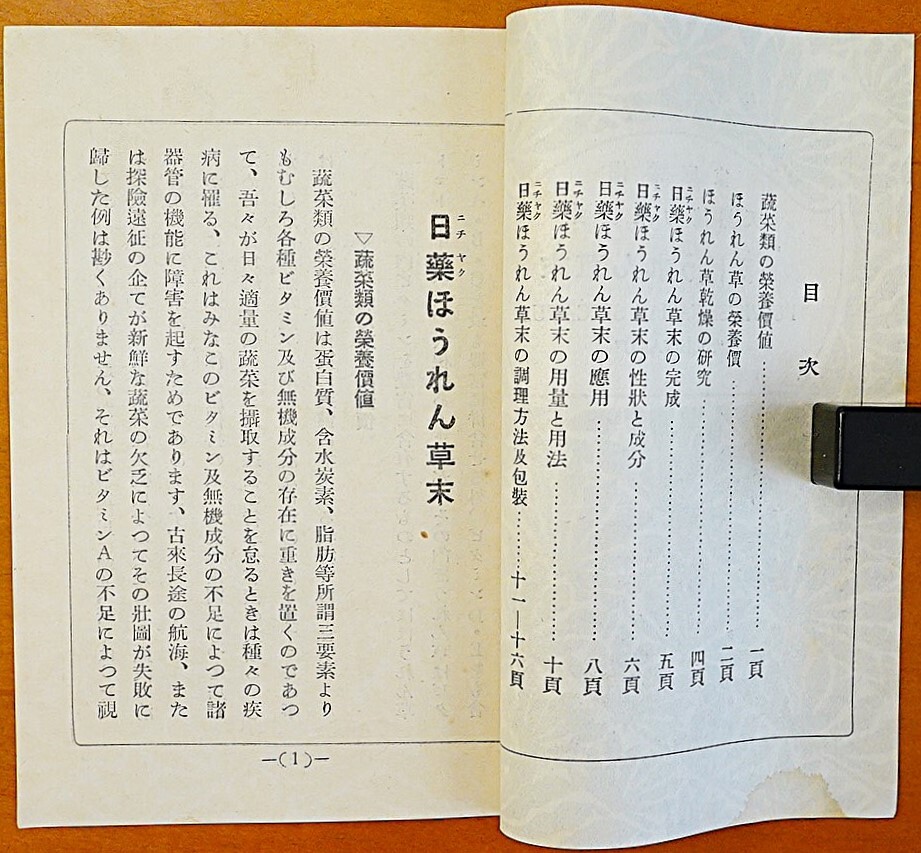 目次
蔬菜類の榮養價値…………一頁
ほうれん草の榮養價…………二頁
ほうれん草乾燥の研究…………四頁
日藥ニチヤクほうれん草末の完成…………五頁
日藥ニチヤクほうれん草末の性狀と成分…………六頁
日藥ニチヤクほうれん草末の應用…………八頁
日藥ニチヤクほうれん草末の用量と用法…………十頁
日藥ニチヤクほうれん草末の調理方法及包裝…………十一―十六頁
日藥ニチヤクほうれん草末
▽蔬菜類の榮養價値
蔬菜類の榮養價値は蛋白質、含水炭素、脂肪等所謂三要素より
もむしろ各種ビタミン及び無機成分の存在に重きを置くのであつ
て、吾々が日々適量の蔬菜を攝取することを怠るときは種々の疾
病に罹る、これはみなこのビタミン及無機成分の不足によつて諸
器管の機能に障害を起すためであります、古來長途の航海、また
は探險遠征の企てが新鮮な蔬菜の欠乏によつてその壯圖が失敗に
歸した例は尠くありません、それはビタミンAの不足によつて視
―(1)―